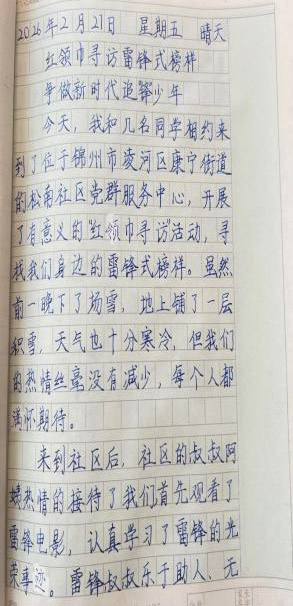 2026年2月21日 星期五 晴天
红领巾寻访雷锋式榜样
争做新时代追锋少年
今天，我和几名同学相约来
到了位于锦州市凌河区康宁街道
的松南社区党群服务中心，开展
了有意义的“红领巾寻访”活动，寻
找我们身边的雷锋式榜样。虽然
前一晚下了场雪，地上铺了一层
积雪，天气也十分寒冷，但我们
的热情丝毫没有减少，每个人都
满怀期待。
来到社区后，社区的叔叔阿
姨热情的接待了我们首先观看了
雷锋电影，认真学习了雷锋的光
荣事迹。雷锋叔叔乐于助人、无